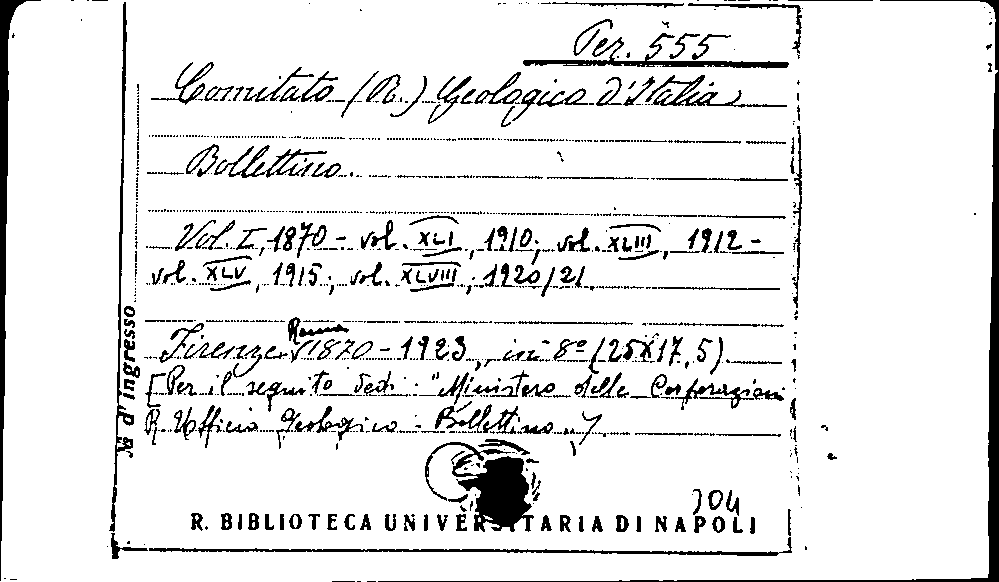 Per. 555
Comitato (R.) Geologico d'Italia
Bollettino.
Vol. I, 1870 - vol. XLI, 1910; vol. XLIII, 1912 -
vol. XLV, 1915; vol. XLVIII, 1920/21.
Roma
Firenze 1870 - 1923, in 8º (25X17,5).
[Per il seguito vedi: "Ministero delle Corporazioni
R. Ufficio Geologico: Bollettino"].
d'ingresso
204
R. BIBLIOTECA UNIVERSITARIA DI NAPOLI